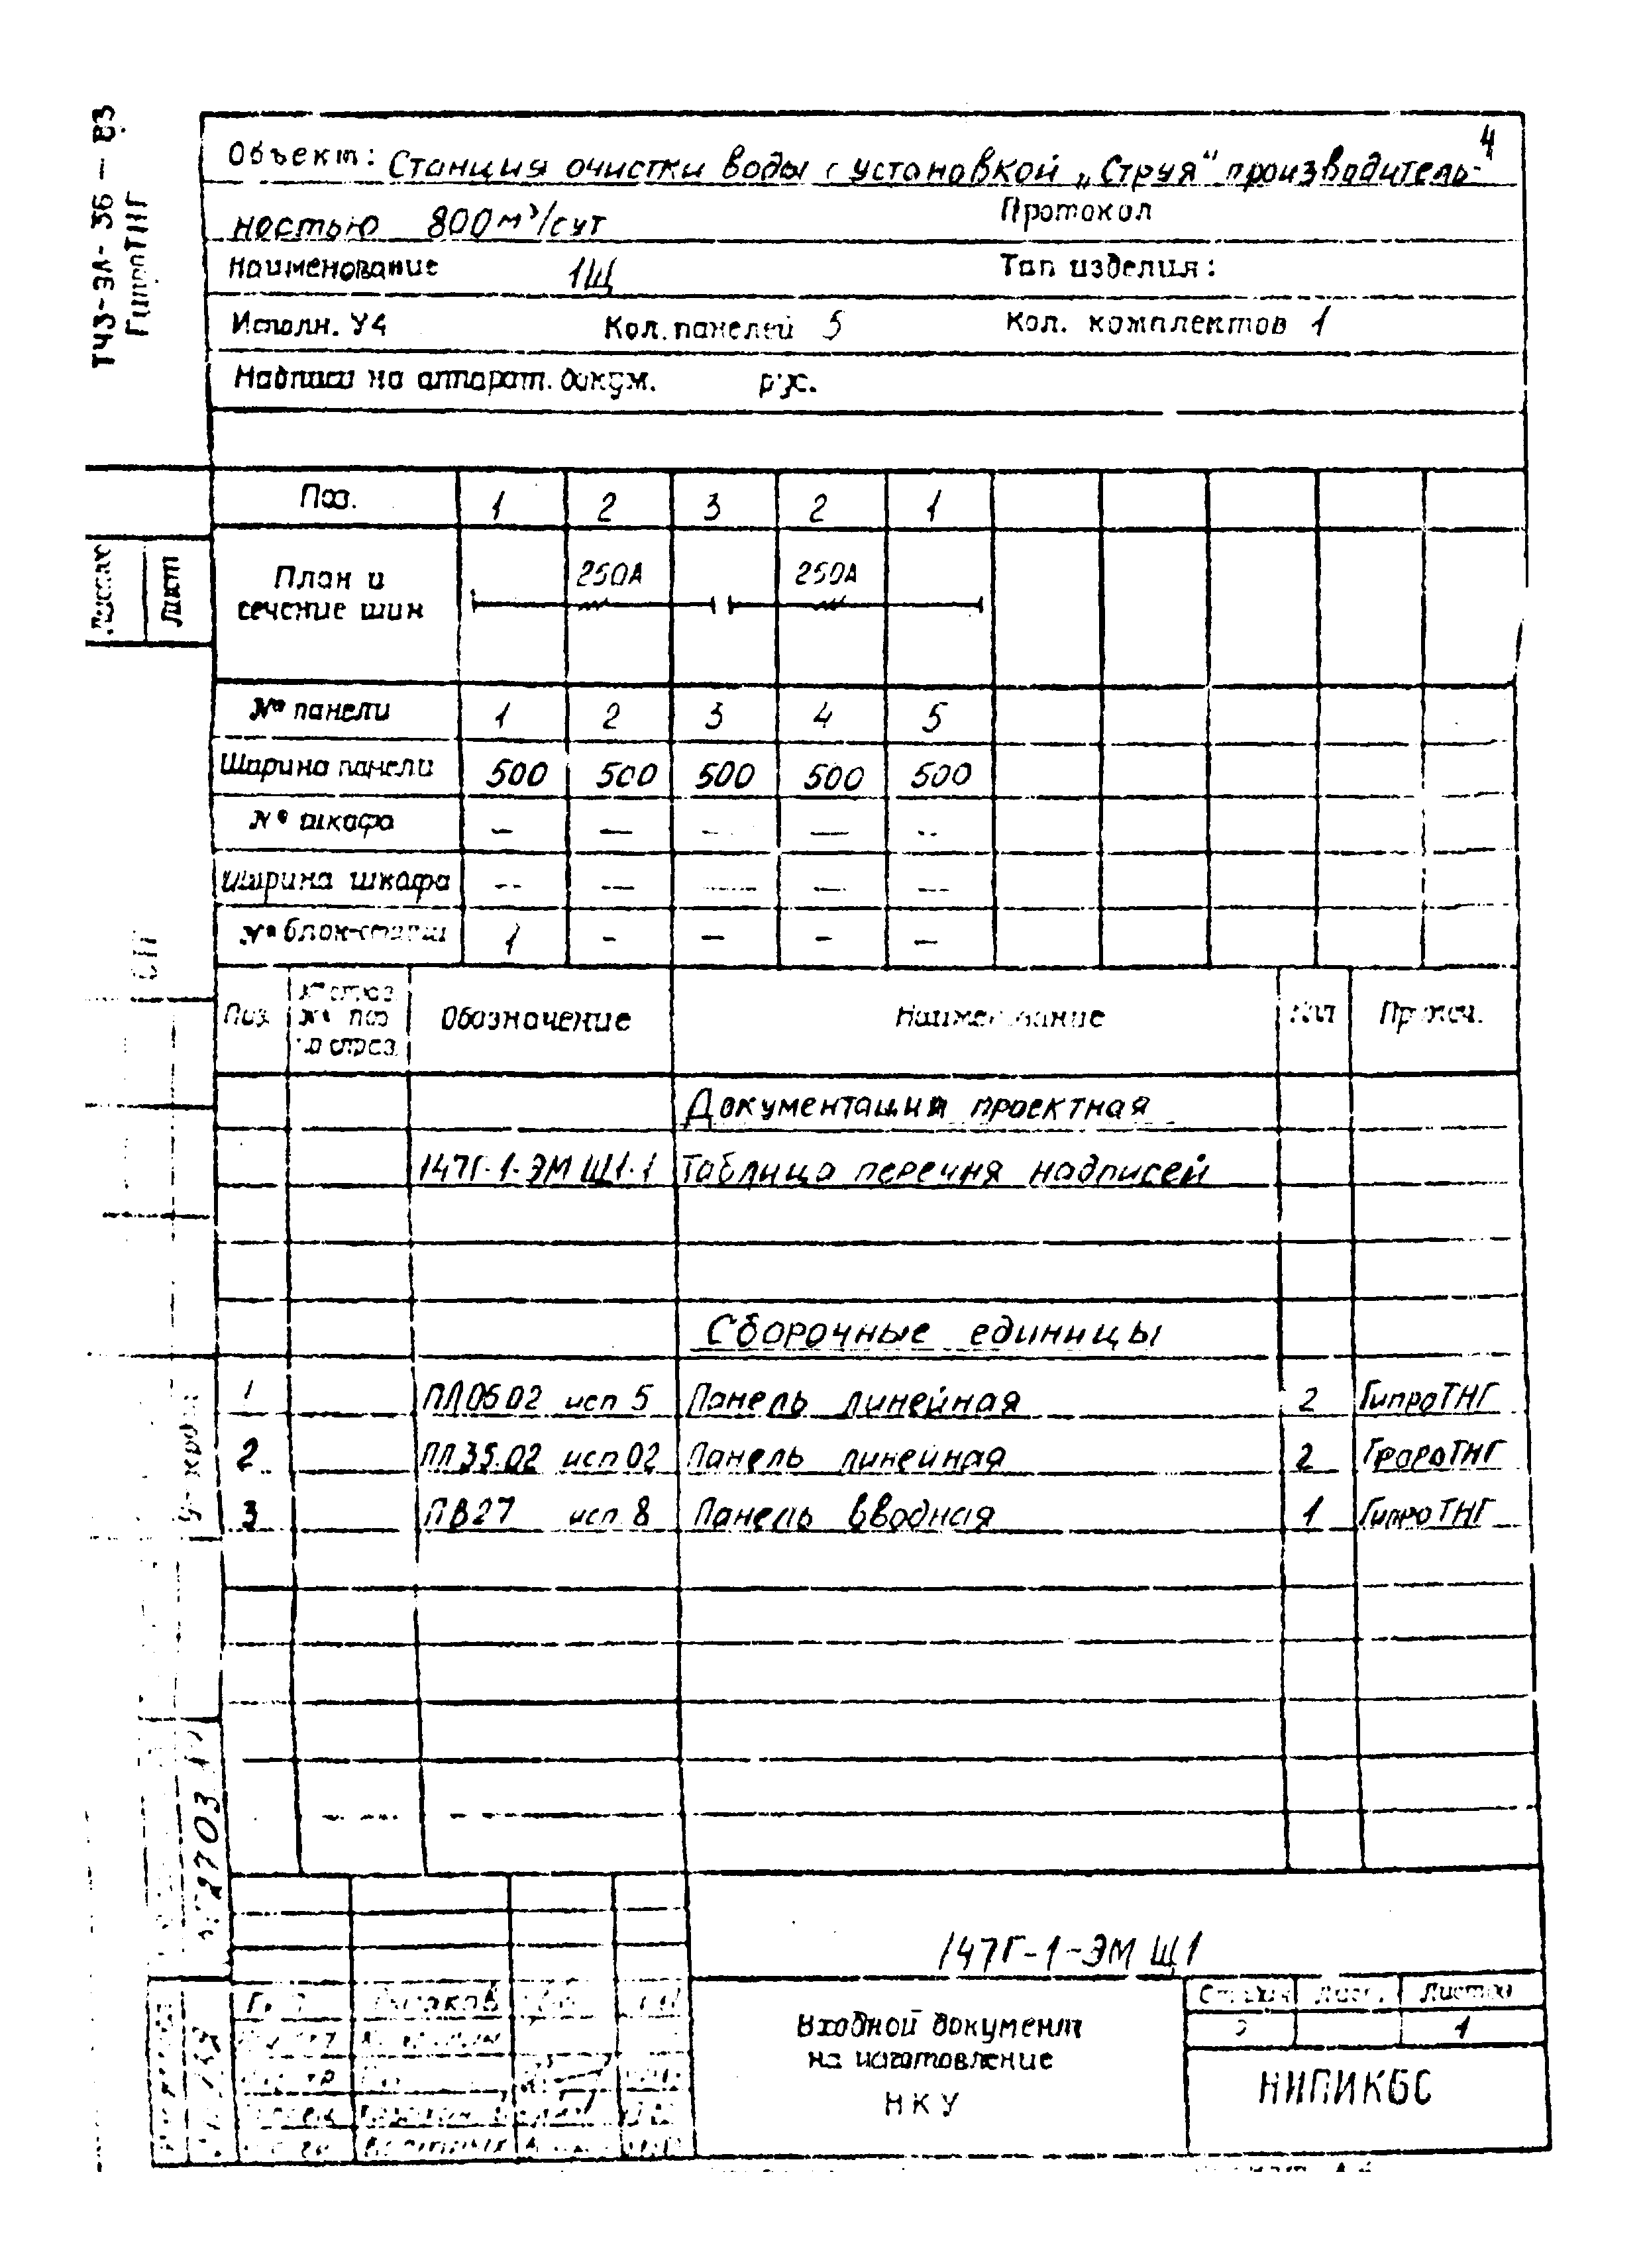 4
Объект: Станция очистки воды с установкой „Струя“ производитель-
ностью 800 м³/сут Протокол
Наименование 1Щ Тип изделия:
Исполн. У4 Кол. панелей 5 Кол. комплектов 1
Надписи на аппарат. докум. рус.
ТЧЗ-ЭЛ-36-ВЗ
ГипроТНГ
Поз. 1 2 3 2 1
План и сечение шин 250А 250А
Лист
№ панели 1 2 3 4 5
Ширина панели 500 500 500 500 500
№ шкафа — — — — —
Ширина шкафа — — — — —
№ блок-секции 1 — — — —
Поз. Обозначение Наименование Кол Примеч.
Документация проектная
147Г-1-ЭМ Щ1.1 Таблица перечня надписей
Сборочные единицы
1 ПЛ0502 исп 5 Панель линейная 2 ГипроТНГ
2 ПЛ35.02 исп 02 Панель линейная 2 ГипроТНГ
3 ПВ27 исп 8 Панель вводная 1 ГипроТНГ
147Г-1-ЭМ Щ1
Входной документ
на изготовление
НКУ
Стадия Лист Листов
1
НИПИКБС